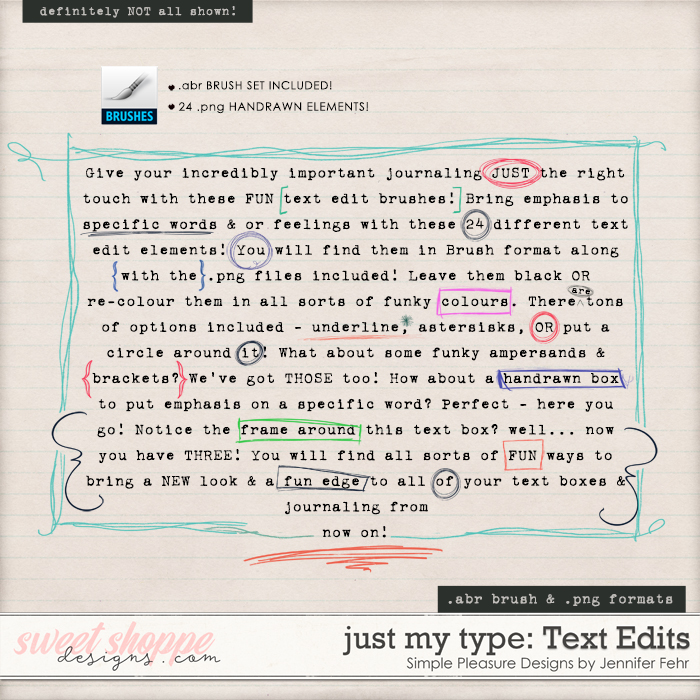 definitely NOT all shown!
.abr BRUSH SET INCLUDED!
BRUSHES
24 .png HANDRAWN ELEMENTS!
Give your incredibly important journaling JUST the right
touch with these FUN [text edit brushes!] Bring emphasis to
specific words & or feelings with these 24 different text
edit elements! You will find them in Brush format along
{with the} .png files included! Leave them black OR
re-colour them in all sorts of funky colours. There ^are tons
of options included - underline,* astersisks, OR put a
circle around it! What about some funky ampersands &
{brackets?} We've got THOSE too! How about a handrawn box
to put emphasis on a specific word? Perfect - here you
go! Notice the frame around this text box? well... now
you have THREE! You will find all sorts of FUN ways to
bring a NEW look & a fun edge to all of your text boxes &
journaling from
now on!
.abr brush & .png formats
sweet shoppe
designs.com
just my type: Text Edits
Simple Pleasure Designs by Jennifer Fehr